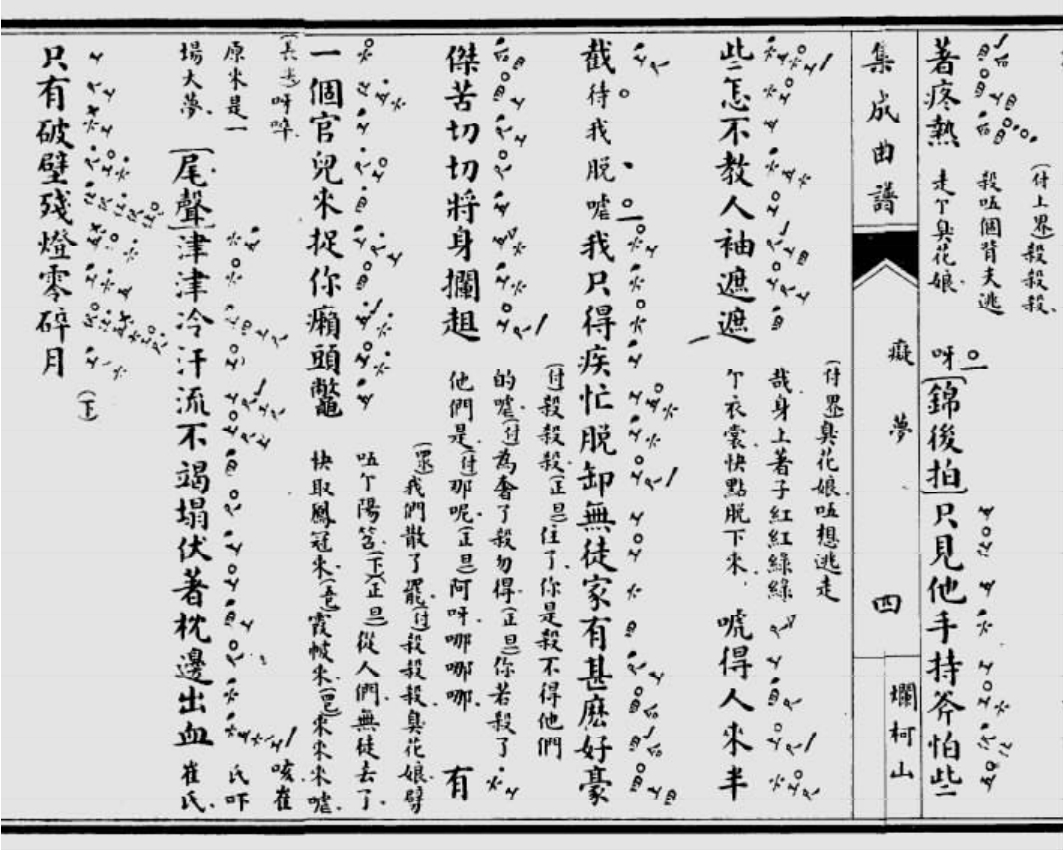 著疼熱
(付上界)殺殺殺
殺咗個背夫逃
走个臭花娘
呀[錦後拍]只見他手持斧怕些
集成曲譜
癡夢
四
爛柯山
些怎不教人袖遮遮
(付界)臭花娘咗想逃走
哉身上著子紅紅綠綠
个衣裳快點脫下來
唬得人來半
截待我脫噓我只得疾忙脫卸無徒家有甚麽好豪
傑苦切切將身攔趄
(付)殺殺殺(正旦)住了你是殺不得他們
的噓(付)為奢了殺勿得(正旦)你若殺了
他們是(付)那呢(正旦)阿呀哪哪哪
有
一個官兒來捉你癩頭鼈
我們散了罷(付)殺殺殺臭花娘劈
咗个陽筶(下)(正旦)從人們無徒去了
快取鳳冠來霞帔來來來來噓
(長尖)呀啐
原來是一
場大夢
[尾聲]津津冷汗流不竭塌伏著枕邊出血
咳崔
氏吓
崔氏
只有破壁殘燈零碎月
(下)